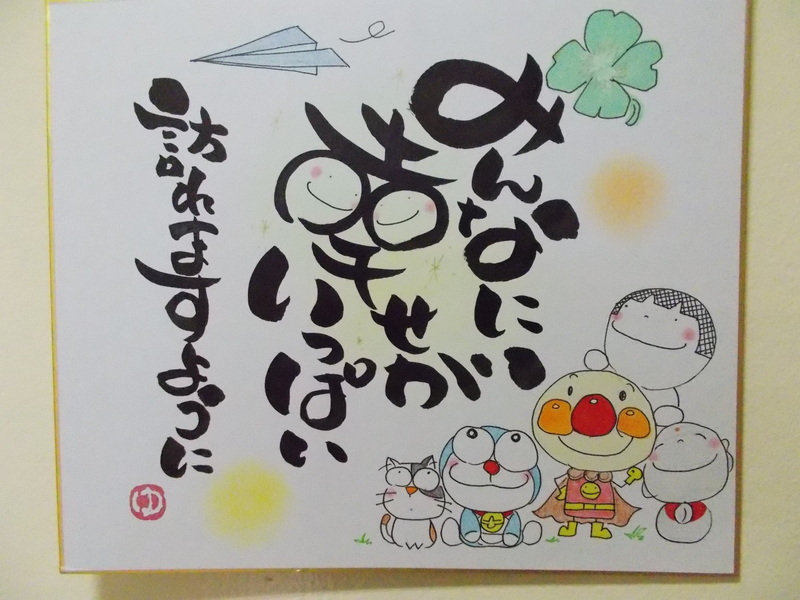 みんなに
幸せが
いっぱい
訪れますように